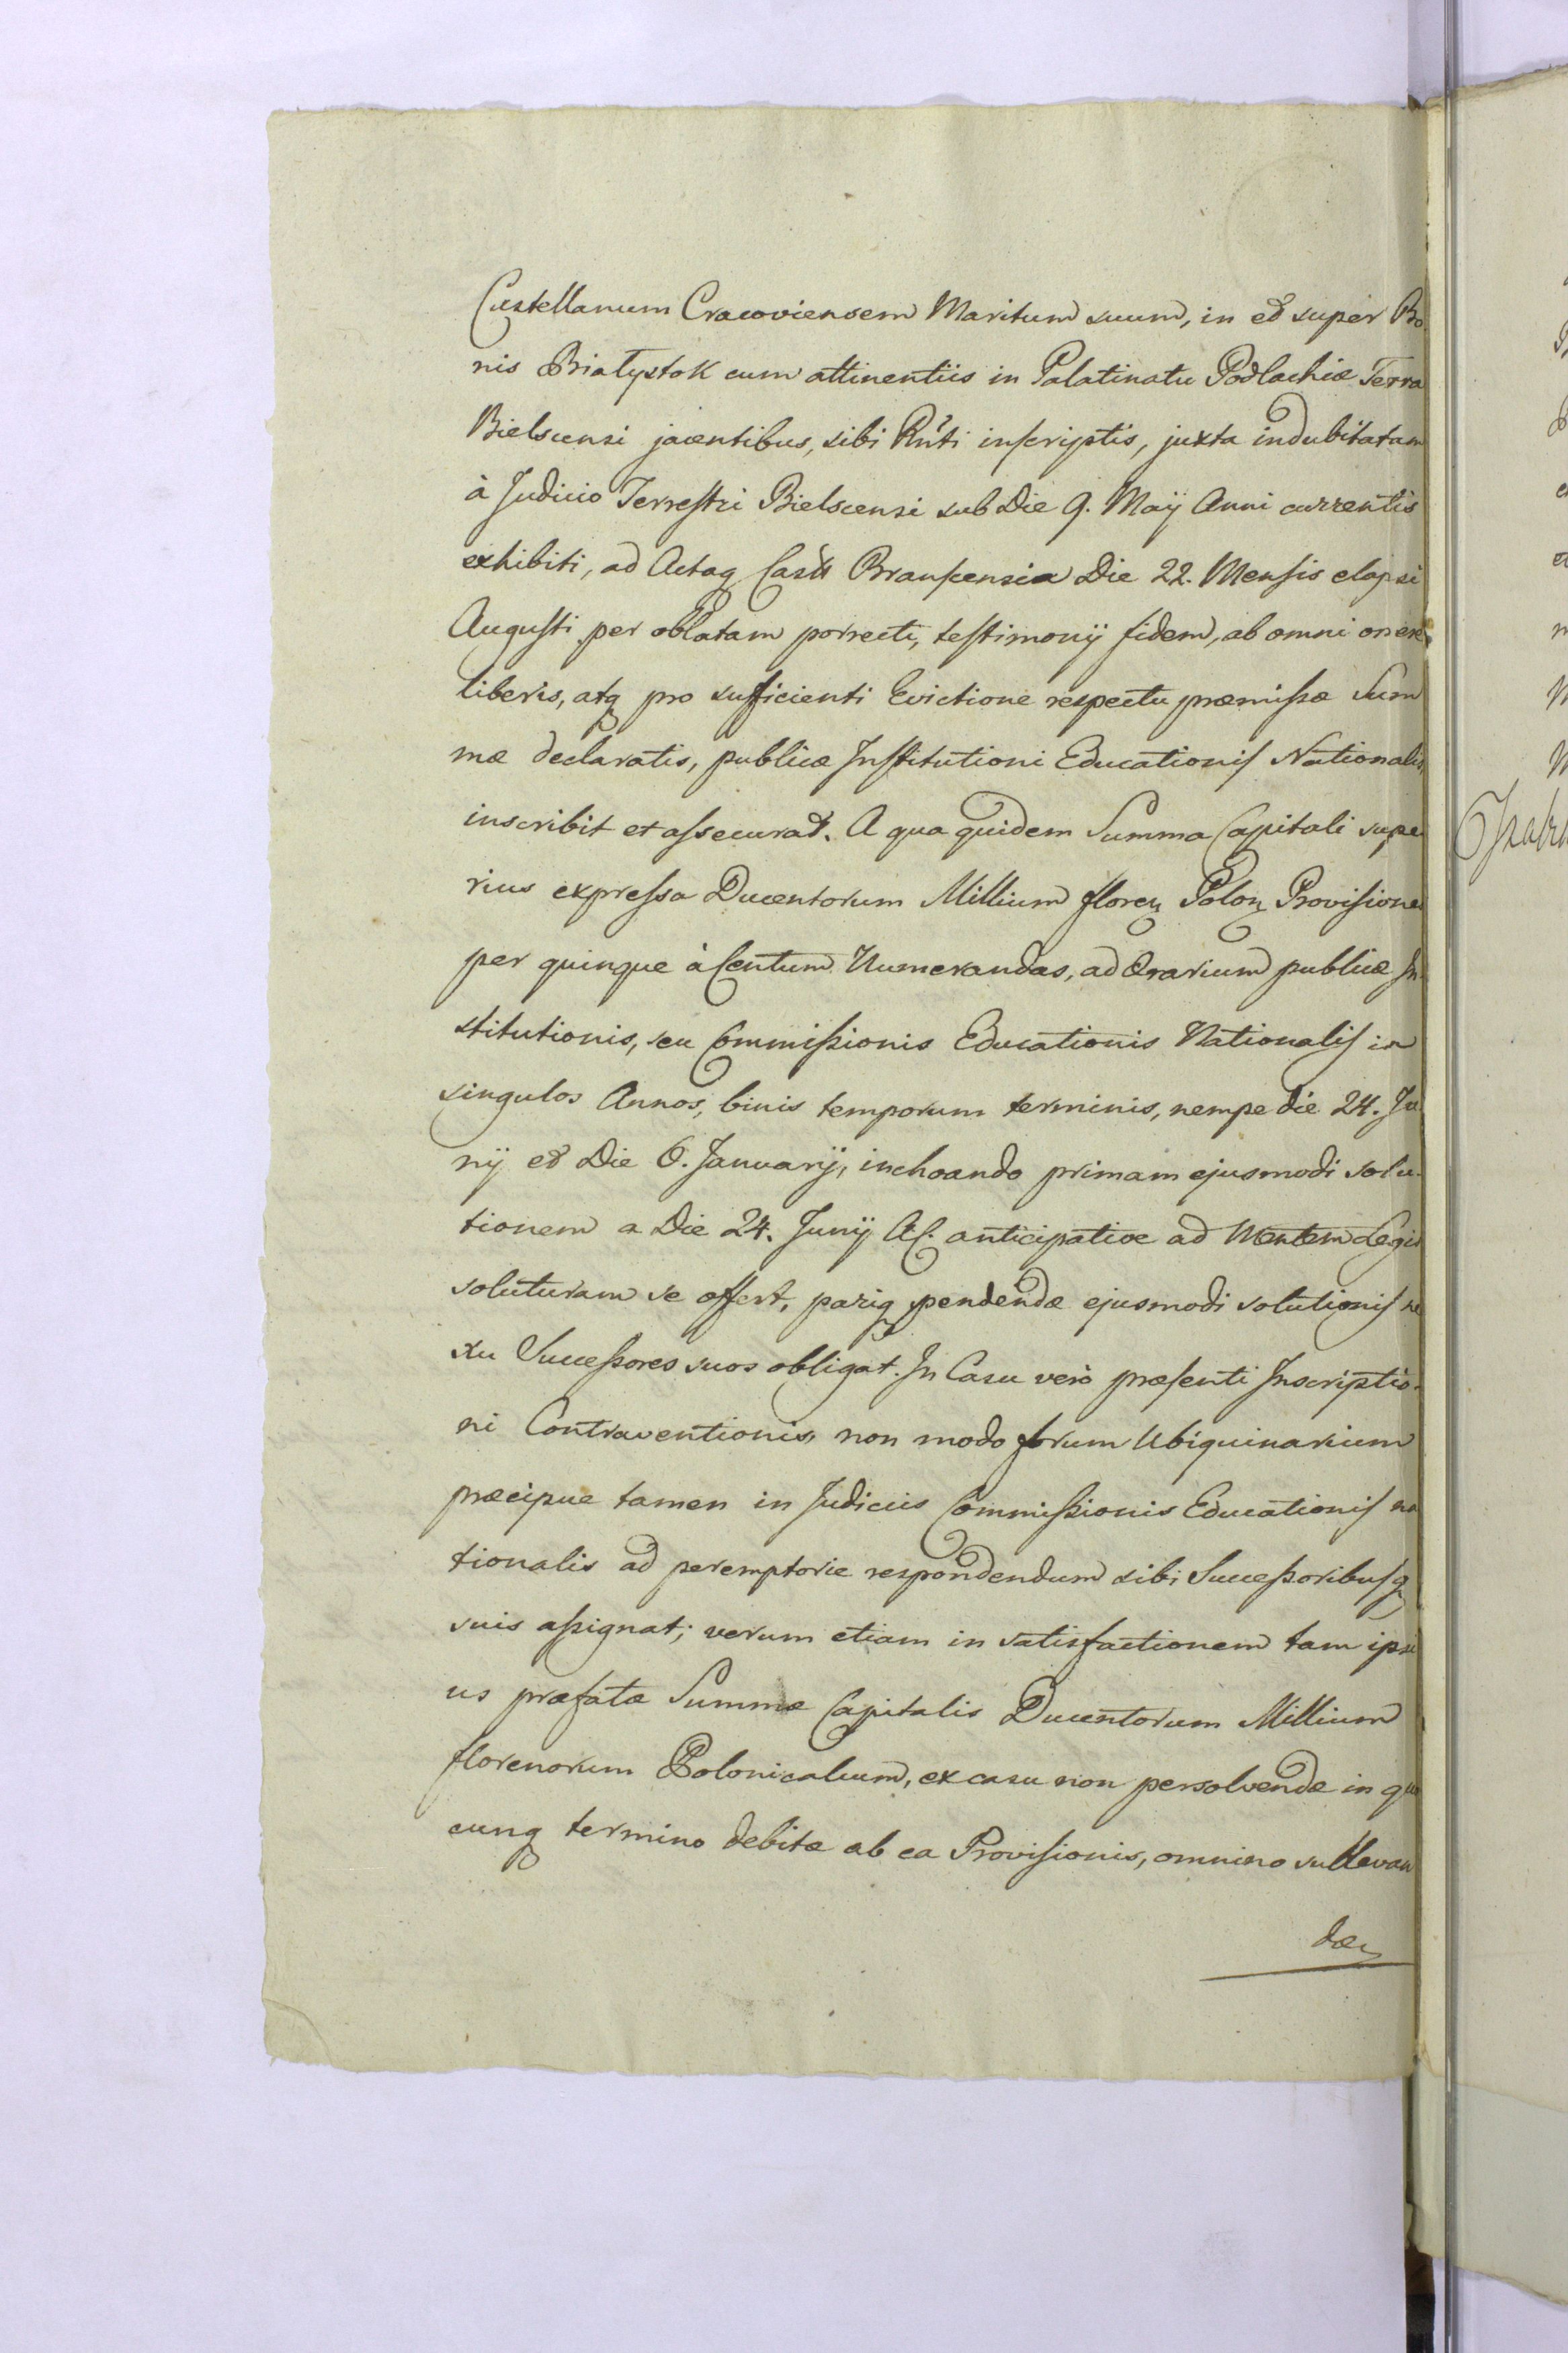 Castellanum Cracoviensem Maritum suum, in et super Bo
nis Białystok cum attinentiis in Palatinatu Podlachiæ Terra
Bielscensi jacentibus, sibi Rn̄ti inscriptis, juxta indubitatam
à Judicio Terrestri Bielscensi sub Die 9. Maÿ Anni currentis
exhibiti, ad Actaq Brauscensia Die 22. Mensis elapsi
Augusti per oblatam porrecti, testimonÿ fidem, ab omni onere
liberis, atq pro sufficienti Evictione respectu præmissæ Sum
mæ declaratis, publicæ Institutioni Educationis Nationalis
inscribit et assecurat. A qua quidem Summa Capitali supe
rius expressa Ducentorum Millium floren Polon Provisiones
per quinque à Centum Numerandas, ad Ærarium publicæ In
stitutionis, seu Commissionis Educationis Nationalis in
singulos Annos, binis temporum terminis, nempe die 24. Ju
nÿ et Die 6. Januarÿ, inchoando primam ejusmodi solu-
tionem a Die 24. Junÿ AC. anticipative ad Mentem Legis
soluturam se offert, pariq pendendæ ejusmodi solutionis ne
xu Successores suos obligat. In Casu verò præsenti Inscriptio-
ni Contraventionis, non modo forum Ubiquinarium
præcipue tamen in Judiciis Commissionis Educationis na
tionalis ad peremptorie respondendum sibi Successoribusq
suis assignat; verum etiam in satisfactionem tam ipsi
us præfatæ Summæ Capitalis Ducentorum Millium
florenorum Polonicalium, ex casu non persolvendæ in quo
cunq termino debitæ ab ea Provisionis, omnino sullevan
dæ